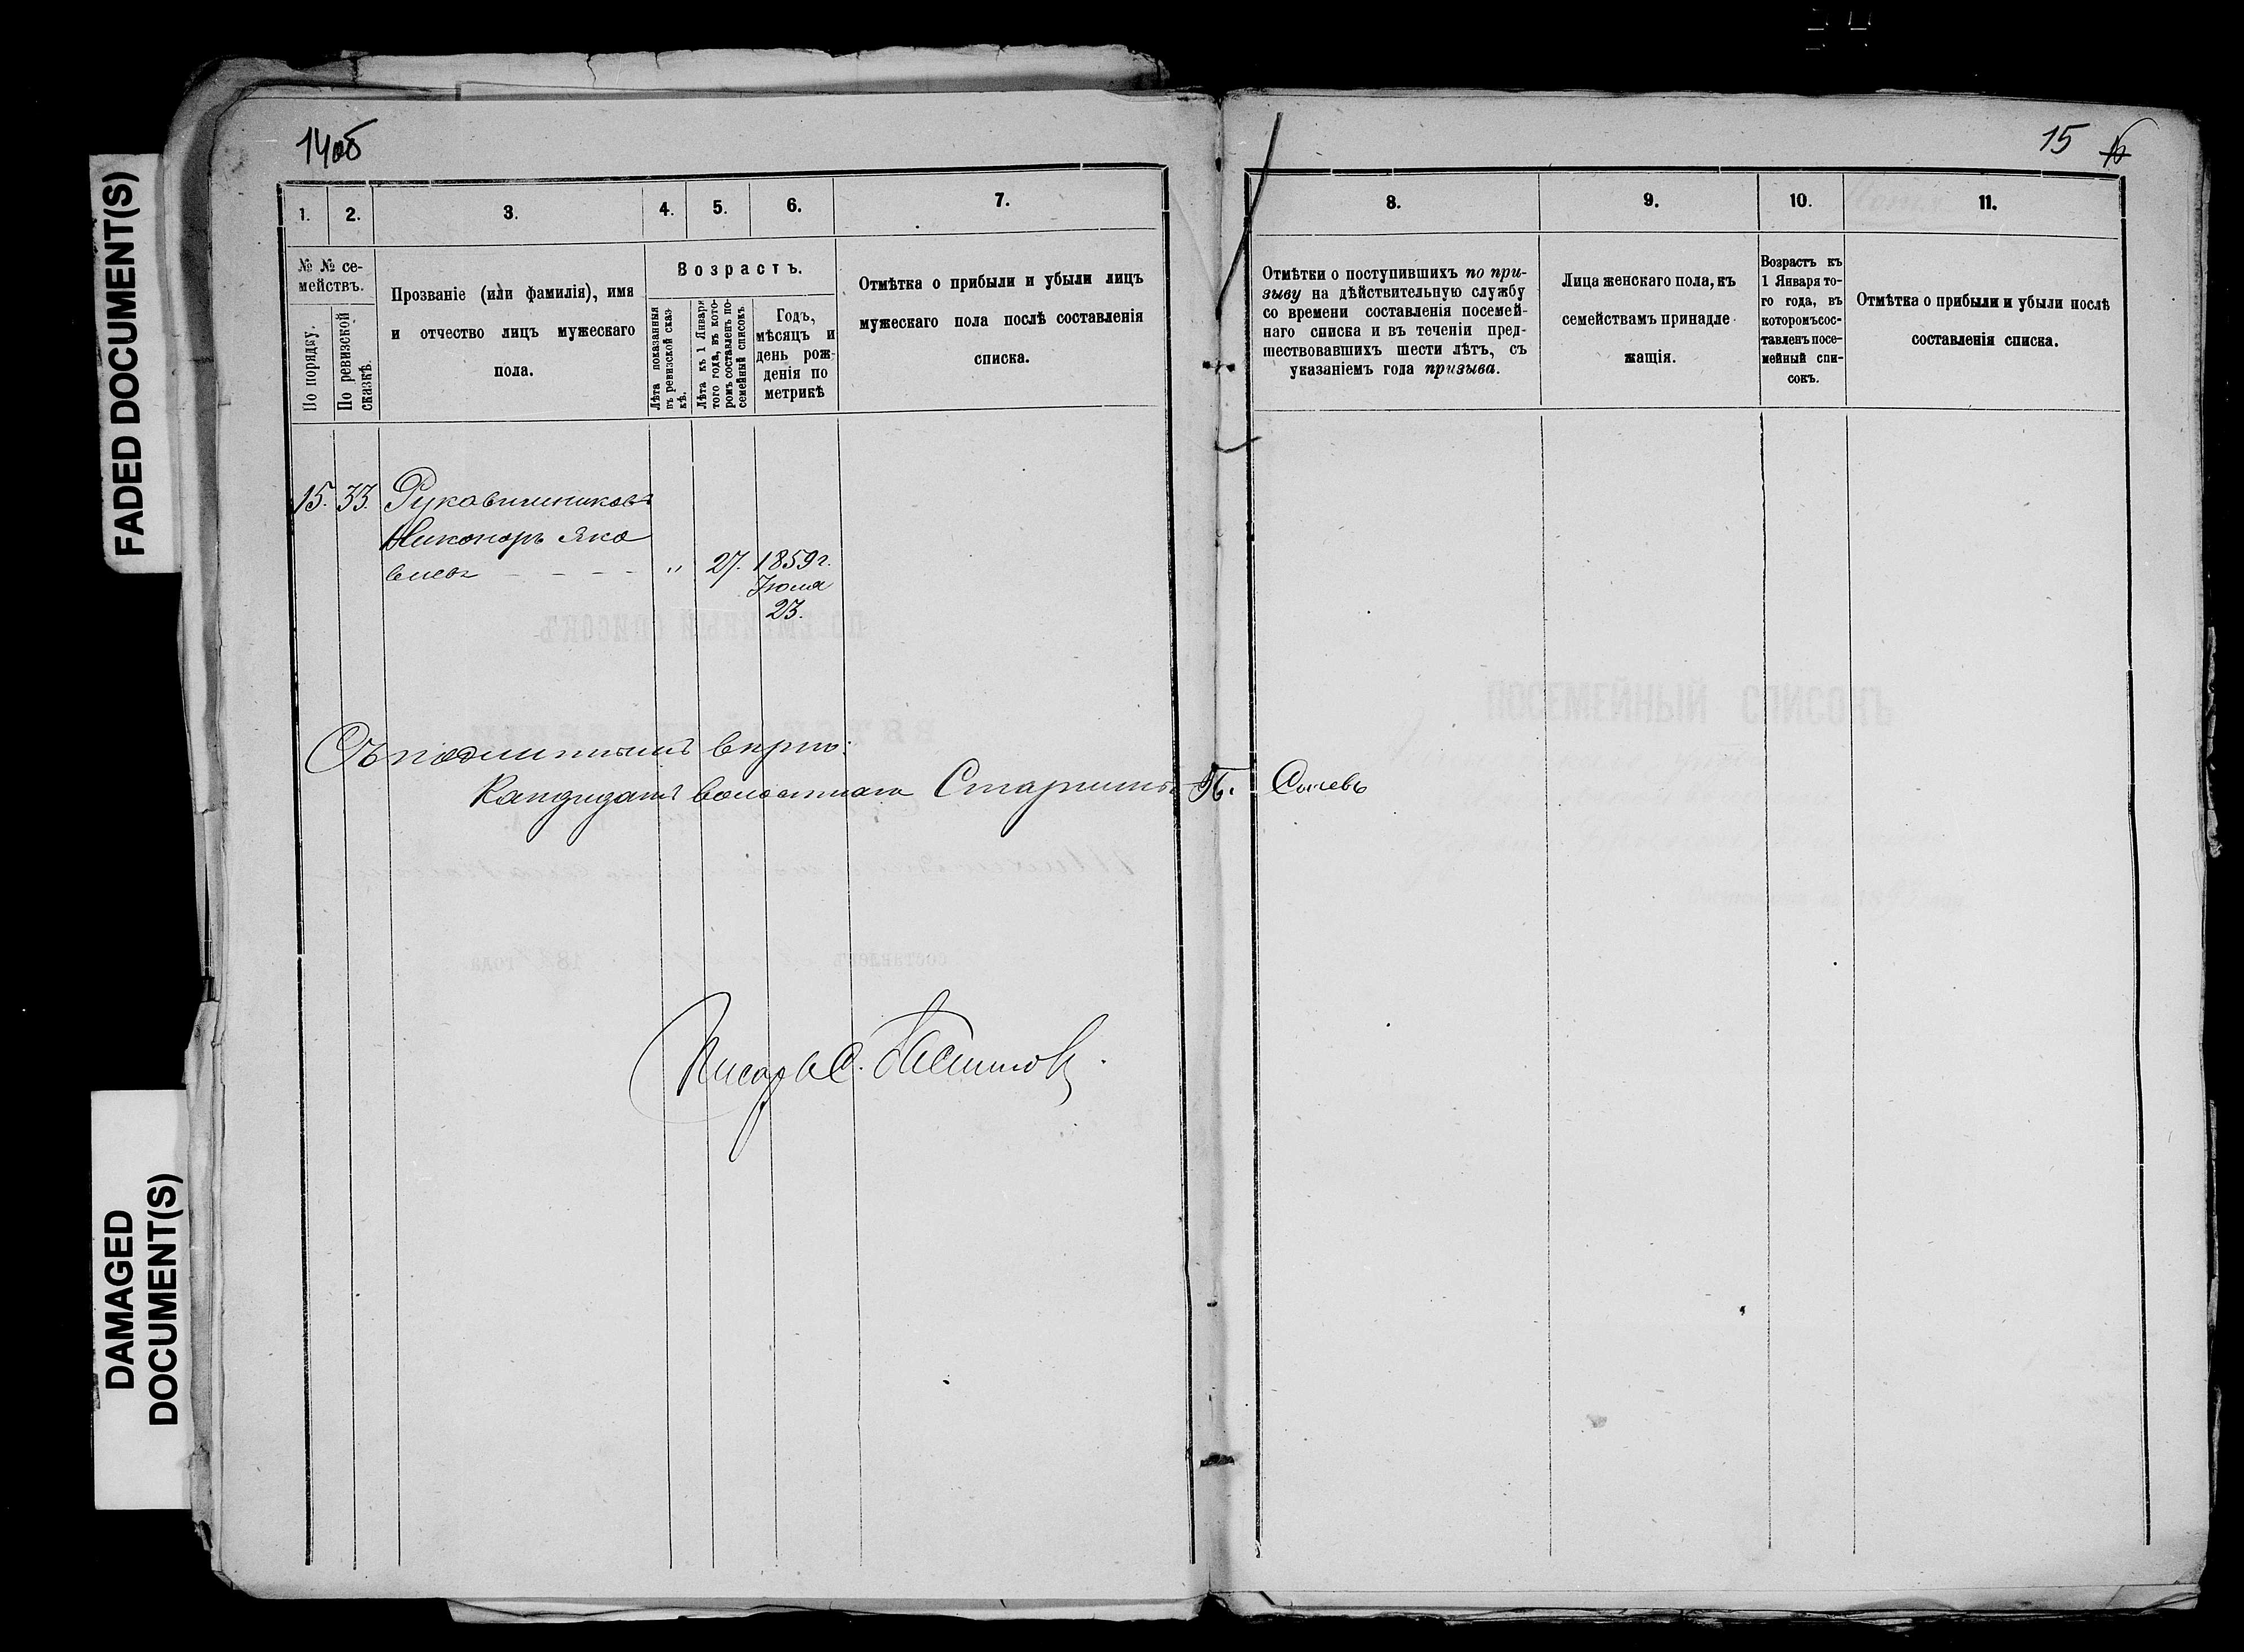 FADED DOCUMENT(S)
DAMAGED
DOCUMENT(S)
14об
1. 2. 3. 4. 5. 6. 7.
№ № се-
мействъ.
По порядку.
По ревизской
сказкѣ.
Прозваніе (или фамилія), имя
и отчество лицъ мужескаго
пола.
Возрастъ.
Лѣта показанныя
въ ревизской сказ-
кѣ.
Лѣта къ 1 Января
того года, въ кото-
ромъ составленъ по-
семейный списокъ
Годъ,
мѣсяцъ и
день рож-
денія по
метрикѣ
Отмѣтка о прибыли и убыли лицъ
мужескаго пола послѣ составленія
списка.
15. 33. Рукавишниковъ
Никоноръ Яко
влевъ - - - - „ 27. 1859 г.
Іюля
23.
Съ подлиннымъ вѣрно:
Кандидатъ волостнаго Старшины
Сычевъ
Писарь С.
15
8. 9. 10. 11.
Отмѣтки о поступившихъ по при-
зыву на дѣйствительную службу
со времени составленія посемей-
наго списка и въ теченіи пред-
шествовавшихъ шести лѣтъ, съ
указаніемъ года призыва.
Лица женскаго пола, къ
семействамъ принадле-
жащія.
Возрастъ къ
1 Января то-
го года, въ
которомъ сос-
тавленъ посе-
мейный спи-
сокъ.
Отмѣтка о прибыли и убыли послѣ
составленія списка.
ПОСЕМЕЙНЫЙ СПИСОКЪ